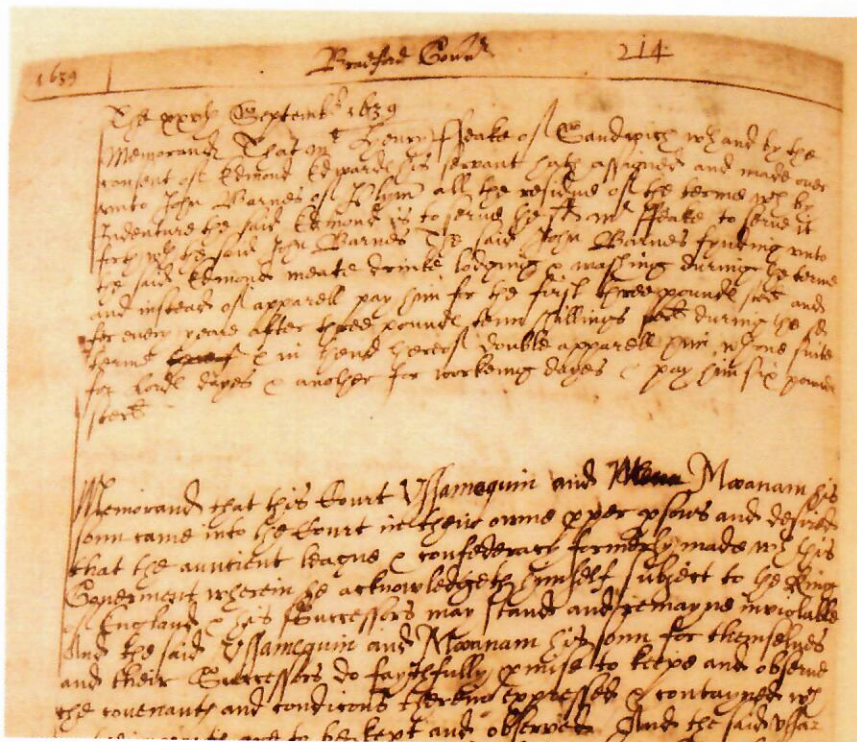 1639 Bradford Gour 214
The xxvth Septembr 1639
Memorand That mr Henry Feake of Sandwich wth and by the
consent of Edmond Edwards his servant hath assigned and made over
unto John Barnes of Plym all the residue of the terme wch by
Indenture the said Edmond is to serve the sd mr Feake to serve it
forth wth the said John Barnes The said John Barnes fynding unto
the said Edmond meate drinke lodging & washing during the terme
and instead of apparell pay him for the first three pounds ster and
for every yeare after three pounds tenn shillings ster during the sd
terme & in thend hereof double apparell him wth one suite
for Lords dayes & another for workeing dayes & pay him six pounds
ster
Memorand that this Court Ussamequin and Mooanam his
sonn came into the Court in their owne pper psons and desired
that the auncient league & confederacy formerly made wth this
Goverment wherein he acknowledgeth himself subject to the King
of England & his Successors may stand and remayne inviolable
And the said Ussamequin and Mooanam his sonn for themselves
and their Successors do faythfully pmise to keepe and observe
the covenants and condicons therein expressed & contayned wch
are to be kept and observed And the said Ussa